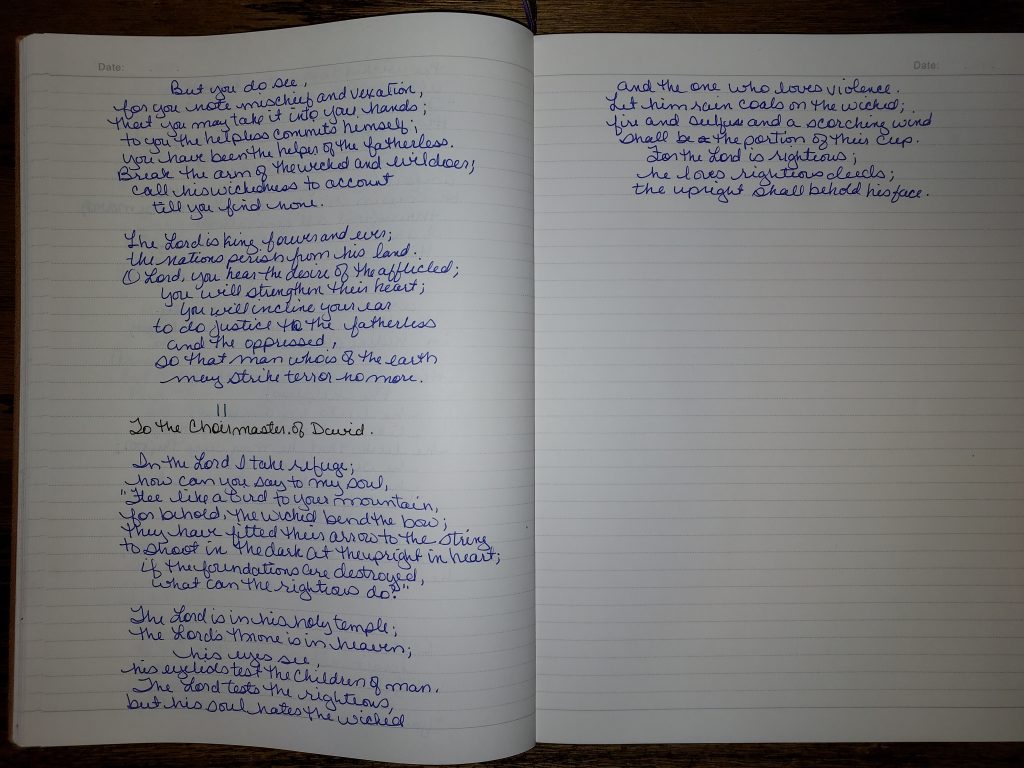 Date:
But you do see,
for you note mischief and vexation,
that you may take it into your hands;
to you the helpless commits himself;
you have been the helper of the fatherless.
Break the arm of the wicked and evildoer;
call his wickedness to account
till you find none.
The Lord is king forever and ever;
the nations perish from his land.
O Lord, you hear the desire of the afflicted;
you will strengthen their heart;
you will incline your ear
to do justice to the fatherless
and the oppressed,
so that man who is of the earth
may strike terror no more.
11
To the Choirmaster. Of David.
In the Lord I take refuge;
how can you say to my soul,
"Flee like a bird to your mountain,
for behold, the wicked bend the bow;
they have fitted their arrow to the string
to shoot in the dark at the upright in heart;
if the foundations are destroyed,
what can the righteous do?"
The Lord is in his holy temple;
the Lord's throne is in heaven;
his eyes see,
his eyelids test the children of man.
The Lord tests the righteous,
but his soul hates the wicked
Date:
and the one who loves violence.
Let him rain coals on the wicked;
fire and sulfur and a scorching wind
shall be the portion of their cup.
For the Lord is righteous;
he loves righteous deeds;
the upright shall behold his face.